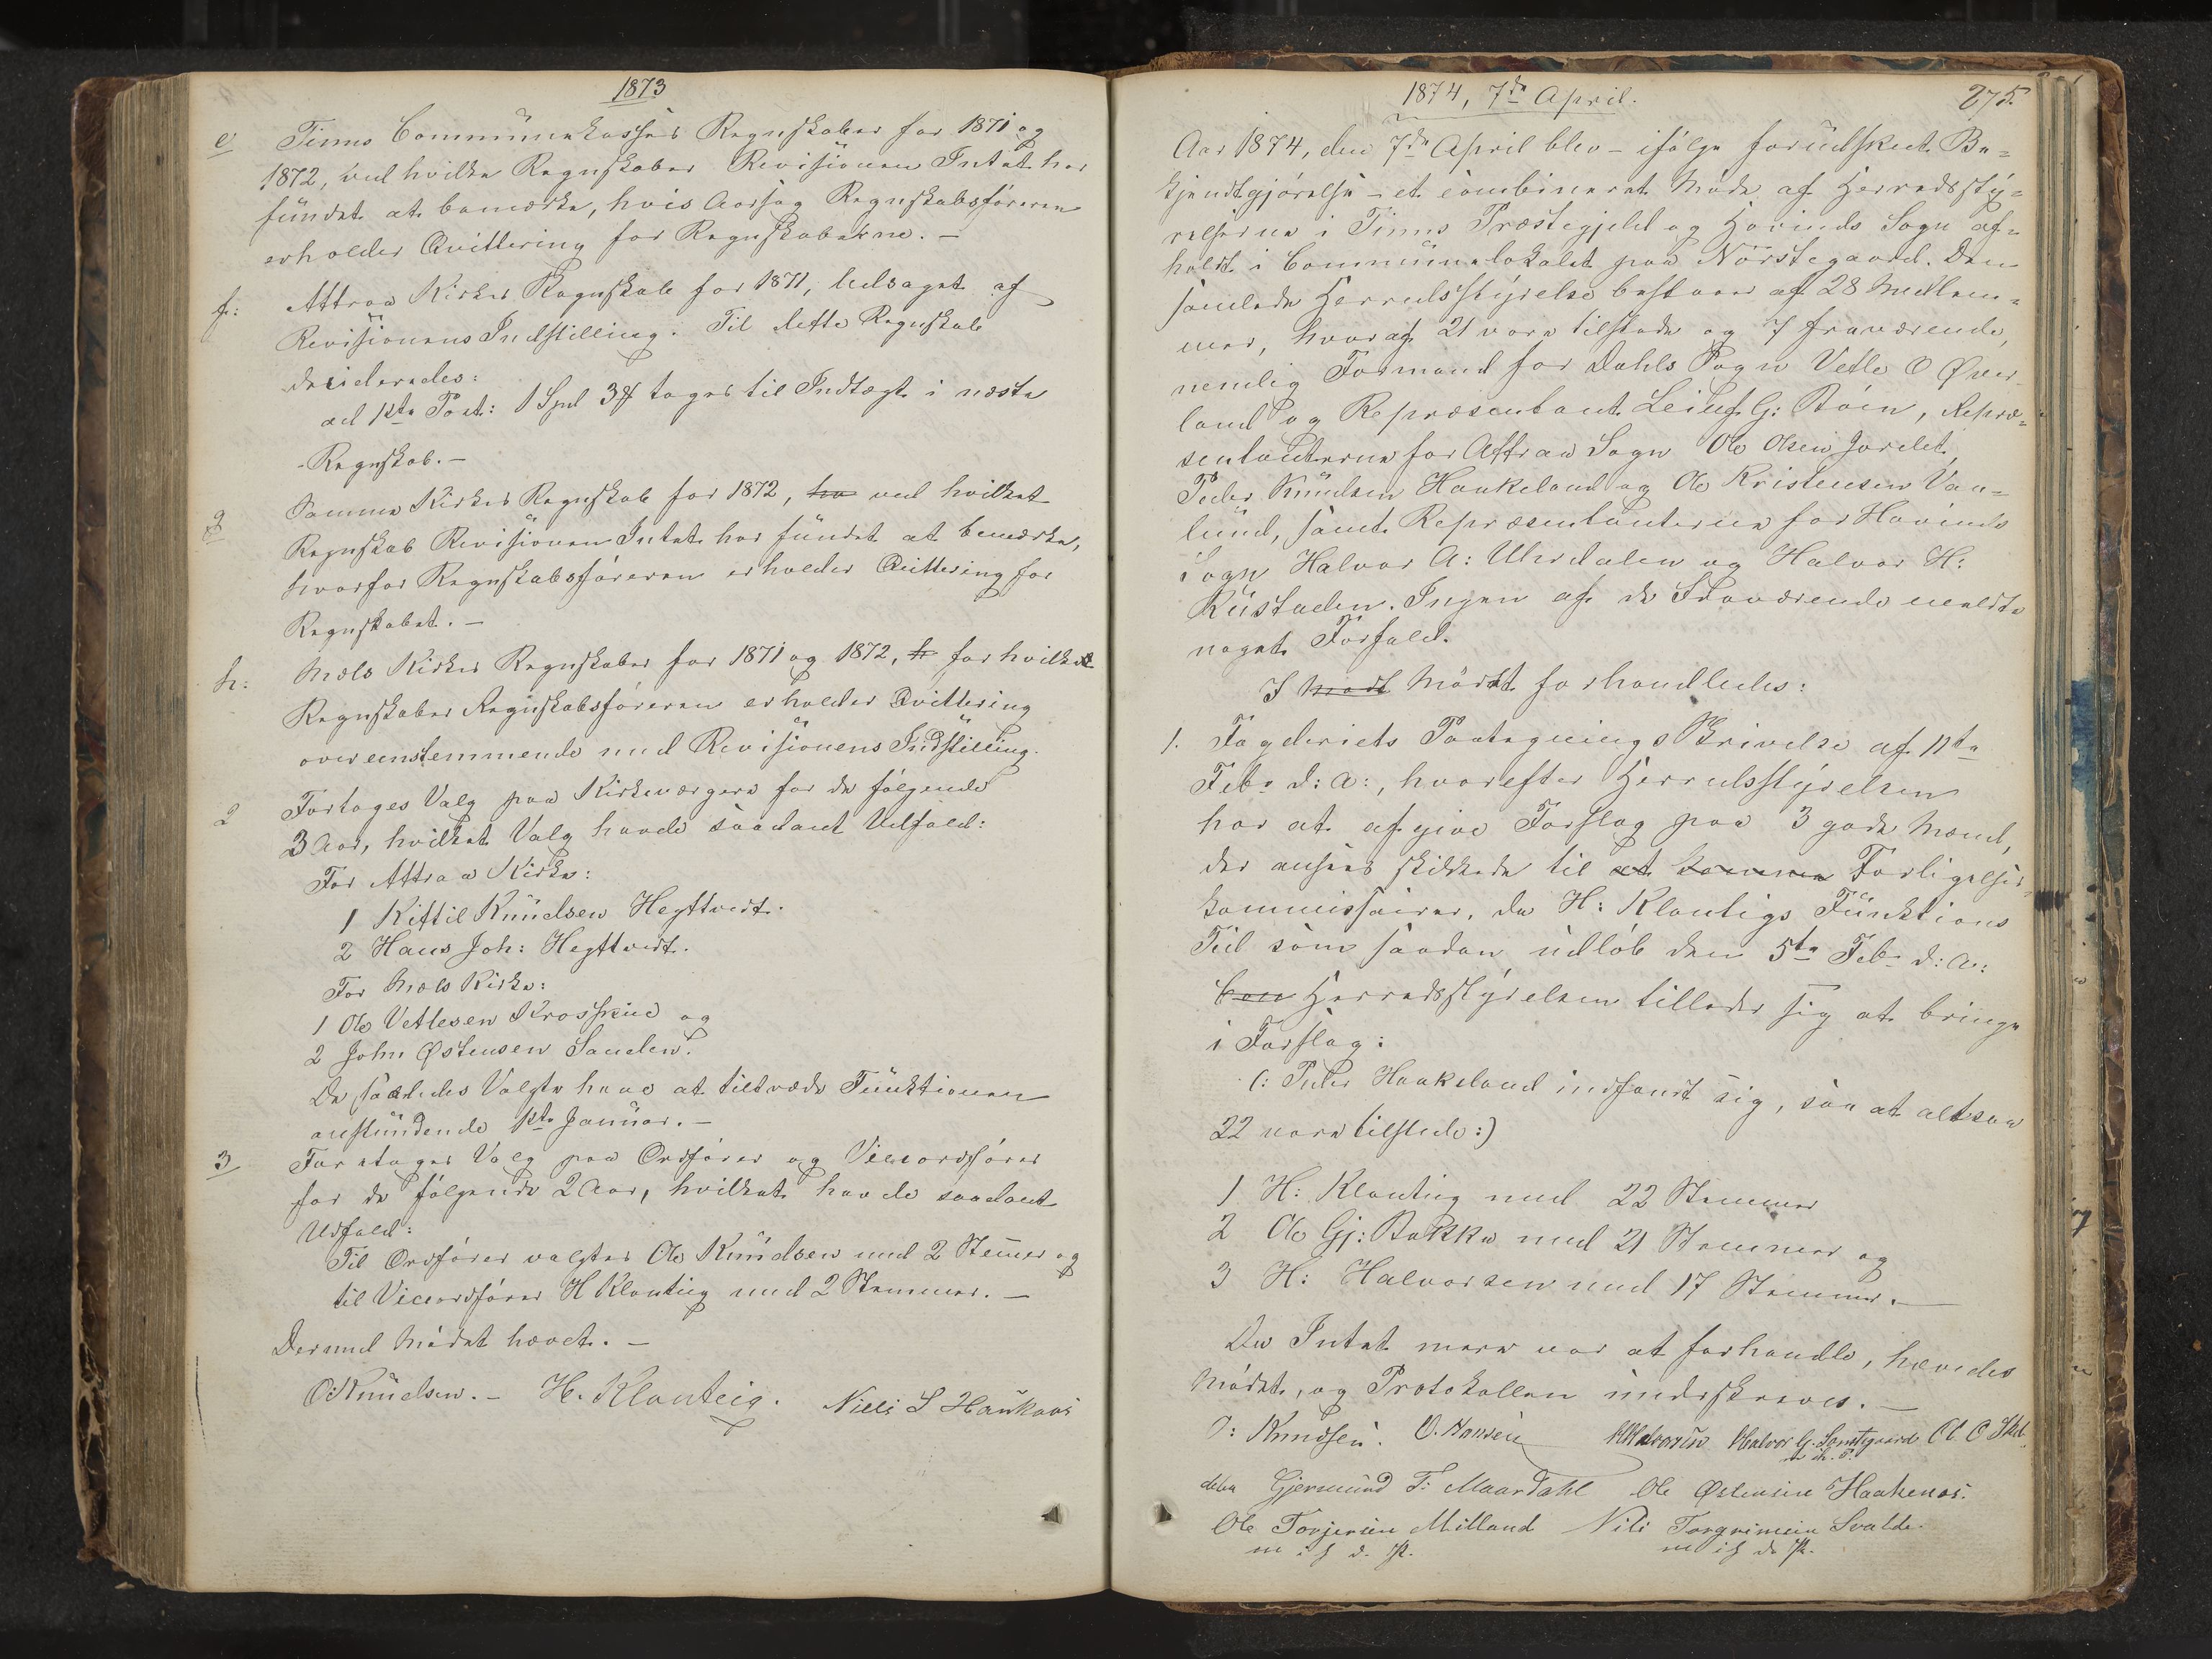 1873
e Tinns Communekasses Regnskaber for 1871 og
1872, ved hvilke Regnskaber Revisionen Intet har
fundet at bemærke, hvis Aarsag Regnskabsføreren
erholder Qvittering for Regnskaberne. –
f: Attraa Kirkes Regnskab for 1871, ledsaget af
Revisionens Indstilling. Til dette Regnskab
decideredes:
ad 1ste Post: 1 Spd 3 ß tages til Indtægt i næste
Regnskab. –
g Samme Kirkes Regnskab for 1872, ved hvilket
Regnskab Revisionen Intet har fundet at bemærke,
hvorfor Regnskabsføreren erholder Qvittering for
Regnskabet. –
h: Mæls Kirkes Regnskaber for 1871 og 1872, for hvilke
Regnskaber Regnskabsføreren erholder Qvittering
overeenstemmende med Revisionens Indstilling.
2 Fortoges Valg paa Kirkeværgere for de følgende
3 Aar, hvilket Valg havde saadant Udfald:
For Attraa Kirke:
1 Kittil Knudsen Hegttvedt.
2 Hans Joh: Hegttvedt.
For Mæls Kirke:
1 Ole Vetlesen Krosshue og
2 John Østensen Sanden.
De saaledes Valgte have at tiltræde Funktionen
anstundende 1ste Januar. –
3 Foretoges Valg paa Ordfører og Viceordfører
for de følgende 2 Aar, hvilket havde saadant
Udfald:
Til Ordfører valgtes Ole Knudsen med 2 Stemer og
til Viceordfører H Klonteig med 2 Stemmer. –
Dermed Mødet hævet. –
O Knudsen. – H. Klonteig. Niels S Haukaas
1874, 7de April. 275.
Aar 1874, den 7de April blev – ifølge forudskeet Be=
kjendtgjørelse – et combineret Møde af Herredssty=
relserne i Tinns Præstegjeld og Hovinds Sogn af=
holdt i Communelokalet paa Nørstegaard. Den
samlede Herredsstyrelse bestaar af 28 Medlem=
mer, hvoraf 21 vare tilstede og 7 fraværende,
nemlig Formand for Dahls Sogn Vetle O Øver=
land og Repræsentant Leiuf G: Bøen, Repræ=
sentanterne for Attraa Sogn Ole Olsen Jordet,
Peder Knudsen Haukeland og Ole Kristensen Vaa=
lund, samt Repræsentanterne for Hovinds
Sogn Halvor A: Uhrdalen og Halvor H:
Rustaden. Ingen af de Fraværende meldte
noget Forfald.
I Mødet forhandledes:
1. Fogderiets Paategnings Skrivelse af 11te
Feb: d: A:, hvorefter Herredsstyrelsen
har at afgive Forslag paa 3 gode Mænd,
der ansees skikkede til at komme Forligelses=
kommissairer, da H: Klontigs Funktions
Tid som saadan udløb den 5te Feb: d: A:
Herredsstyrelsen tillader sig at bringe
i Forslag:
(: Peder Haukeland indfandt sig, saa at altsaa
22 vare tilstede :)
1 H: Klontig med 22 Stemmer
2 Ole Gj: Bakke med 21 Stemmer og
3 H: Halvorsen med 17 Stemmer. –
Da Intet mere var at forhandle, hævedes
Mødet, og Protokollen underskreves. –
O: Knudsen. O. Hansen HHalvorsen Halvor G. Sønstgaard Ol O Skd
Gjermund T: Maardahl Ole Østensen Haakenas.
Ole Torjersen Milland Nils Torgrimsen Svalde.
m i h d. P. m i h d P.